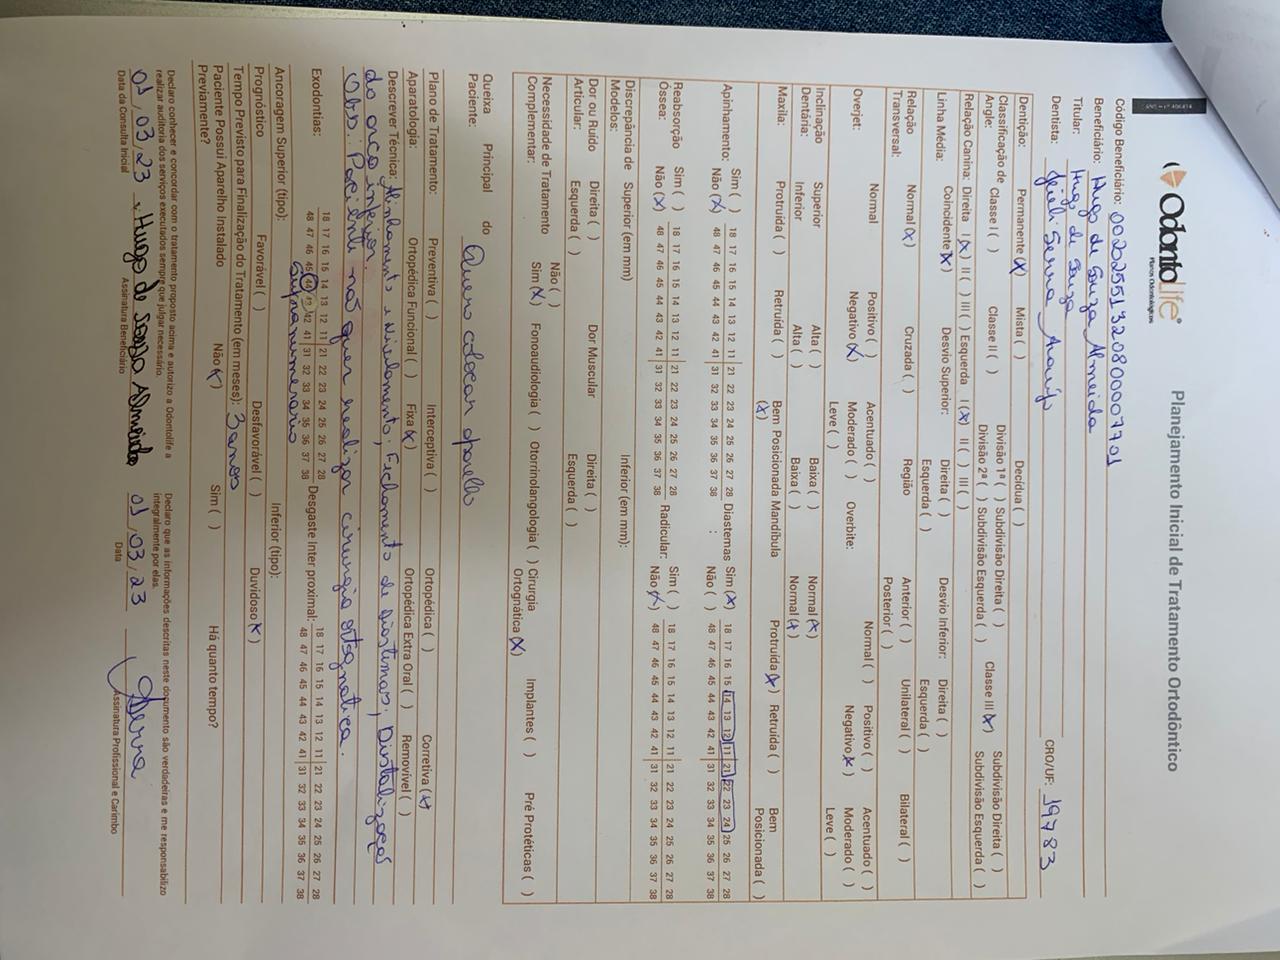 OdontoLife®
Planos Odontológicos
Planejamento Inicial de Tratamento Ortodôntico
Código Beneficiário: 00202551320800007701
Beneficiário: Hugo de Souza Almeida
Titular: Hugo de Souza
Dentista: Serra Araújo CRO/UF: 19783
Dentição: Permanente (X) Mista ( ) Decídua ( )
Classificação de Angle: Classe I ( ) Classe II ( ) Divisão 1ª ( ) Subdivisão Direita ( ) Divisão 2ª ( ) Subdivisão Esquerda ( ) Classe III (X) Subdivisão Direita ( ) Subdivisão Esquerda ( )
Relação Canina: Direita I (X) II ( ) III ( ) Esquerda I (X) II ( ) III ( )
Linha Média: Coincidente (X) Desvio Superior: Direita ( ) Esquerda ( ) Desvio Inferior: Direita ( ) Esquerda ( )
Relação Transversal: Normal (X) Cruzada ( ) Região Anterior ( ) Posterior ( ) Unilateral ( ) Bilateral ( )
Overjet: Normal Positivo ( ) Negativo (X) Acentuado ( ) Moderado ( ) Leve ( ) Overbite: Normal ( ) Positivo ( ) Negativo (X) Acentuado ( ) Moderado ( ) Leve ( )
Inclinação Dentária: Superior Alta ( ) Baixa ( ) Normal (X)
Inferior Alta ( ) Baixa ( ) Normal (X)
Maxila: Protruída ( ) Retruída ( ) Bem Posicionada (X) Mandíbula Protruída (X) Retruída ( ) Bem Posicionada ( )
Apinhamento: Sim ( ) Não (X) 18 17 16 15 14 13 12 11 21 22 23 24 25 26 27 28 Diastemas: Sim (X) Não ( ) 18 17 16 15 14 13 12 11 21 22 23 24 25 26 27 28
48 47 46 45 44 43 42 41 31 32 33 34 35 36 37 38 48 47 46 45 44 43 42 41 31 32 33 34 35 36 37 38
Reabsorção Óssea: Sim ( ) Não (X) 18 17 16 15 14 13 12 11 21 22 23 24 25 26 27 28 Radicular: Sim ( ) Não (X) 18 17 16 15 14 13 12 11 21 22 23 24 25 26 27 28
48 47 46 45 44 43 42 41 31 32 33 34 35 36 37 38 48 47 46 45 44 43 42 41 31 32 33 34 35 36 37 38
Discrepância de Modelos: Superior (em mm) Inferior (em mm):
Dor ou Ruído Articular: Direita ( ) Esquerda ( ) Dor Muscular Direita ( ) Esquerda ( )
Necessidade de Tratamento Complementar: Não ( ) Sim (X) Fonoaudiologia ( ) Otorrinolangologia ( ) Cirurgia Ortognática (X) Implantes ( ) Pré Protéticas ( )
Queixa Principal do Paciente: Quero colocar aparelho
Plano de Tratamento: Preventiva ( ) Interceptiva ( ) Ortopédica ( ) Corretiva (X)
Aparatologia: Ortopédica Funcional ( ) Fixa (X) Ortopédica Extra Oral ( ) Removível ( )
Descrever Técnica: Alinhamento e Nivelamento; Fechamento de diastemas; Distalização
do arco inferior.
Obs: Paciente não quer realizar cirurgia ortognatica.
Exodontias: 18 17 16 15 14 13 12 11 21 22 23 24 25 26 27 28 Desgaste Inter proximal: 18 17 16 15 14 13 12 11 21 22 23 24 25 26 27 28
48 47 46 45 44 43 42 41 31 32 33 34 35 36 37 38 48 47 46 45 44 43 42 41 31 32 33 34 35 36 37 38
supranumerario
Ancoragem Superior (tipo): Inferior (tipo):
Prognóstico Favorável ( ) Desfavorável ( ) Duvidoso (X)
Tempo Previsto para Finalização do Tratamento (em meses): 3 anos
Paciente Possui Aparelho Instalado Previamente? Não (X) Sim ( ) Há quanto tempo?
Declaro conhecer e concordar com o tratamento proposto acima e autorizo a Odontolife a
realizar auditoria dos serviços executados sempre que julgar necessário.
Declaro que as informações descritas neste documento são verdadeiras e me responsabilizo
integralmente por elas.
01,03,23 Hugo de Souza Almeida 01,03,23 Serra
Data da Consulta Inicial Assinatura Beneficiário Data Assinatura Profissional e Carimbo